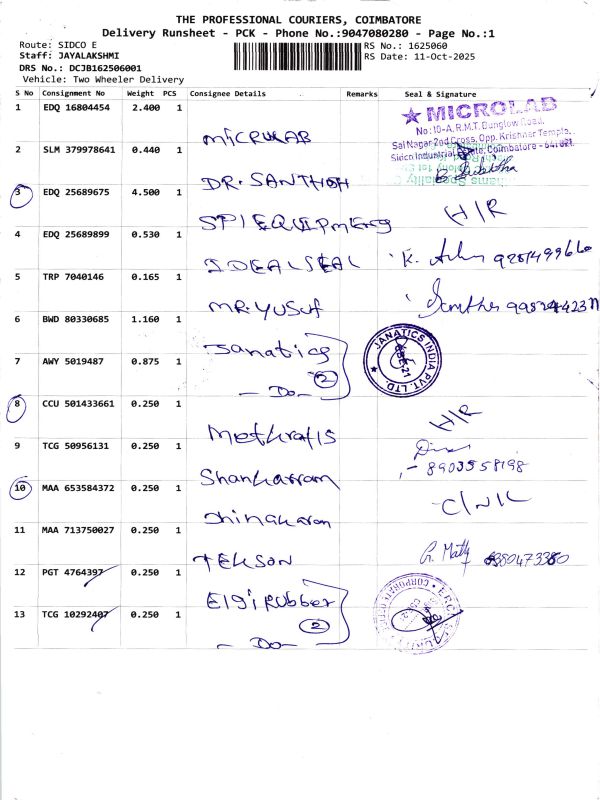 THE PROFESSIONAL COURIERS, COIMBATORE
Delivery Runsheet - PCK - Phone No.:9047080280 - Page No.:1
Route: SIDCO E
RS No.: 1625060
Staff: JAYALAKSHMI
RS Date: 11-Oct-2025
DRS No.: DCJB162506001
Vehicle: Two Wheeler Delivery
S No Consignment No Weight PCS Consignee Details Remarks Seal & Signature
1 EDQ 16804454 2.400 1 MICROLAB
★ MICROLAB
No: 10-A, R.M.T. Bunglow Road,
Sai Nagar 2nd Cross, Opp. Krishner Temple,
Sidco Industrial Estate, Coimbatore - 641021.
2 SLM 379978641 0.440 1 DR. SANTHOSH
3 EDQ 25689675 4.500 1 SPI EQUIPMENTS H/R
4 EDQ 25689899 0.530 1 IDEAL SEAL
5 TRP 7040146 0.165 1 MR. YUSUF
6 BWD 80330685 1.160 1 Janatics
JANATICS INDIA PVT. LTD.
7 AWY 5019487 0.875 1 - Do - 2
8 CCU 501433661 0.250 1 H/R
9 TCG 50956131 0.250 1 Shankarram 8903558198
10 MAA 653584372 0.250 1 Dhinakaran
11 MAA 713750027 0.250 1 TEKSON
12 PGT 4764397 0.250 1 Elgi Rubber
13 TCG 10292407 0.250 1 - Do - 2